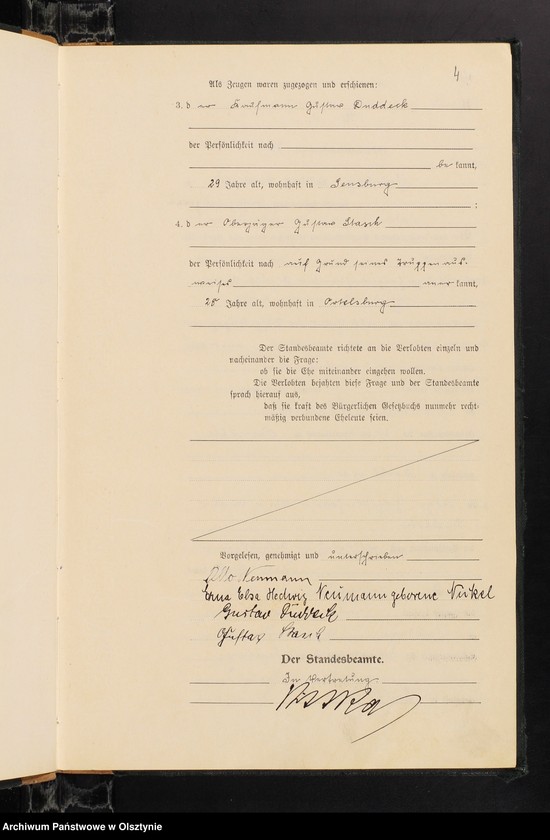 4
Als Zeugen waren zugezogen und erschienen:
3. d er Kaufmann Gustav Duddeck
der Persönlichkeit nach
be kannt,
29 Jahre alt, wohnhaft in Sensburg
;
4. d er Oberjäger Gustav Stasch
der Persönlichkeit nach auf Grund seines Truppenaus-
weises aner kannt,
25 Jahre alt, wohnhaft in Ortelsburg
Der Standesbeamte richtete an die Verlobten einzeln und
nacheinander die Frage:
ob sie die Ehe miteinander eingehen wollen.
Die Verlobten bejahten diese Frage und der Standesbeamte
sprach hierauf aus,
daß sie kraft des Bürgerlichen Gesetzbuchs nunmehr recht-
mäßig verbundene Eheleute seien.
Vorgelesen, genehmigt und unterschrieben
Otto Neumann
Erna Elsa Hedwig Neumann geborene Nickel
Gustav Duddeck
Gustav
Der Standesbeamte.
In Vertretung
Archiwum Państwowe w Olsztynie